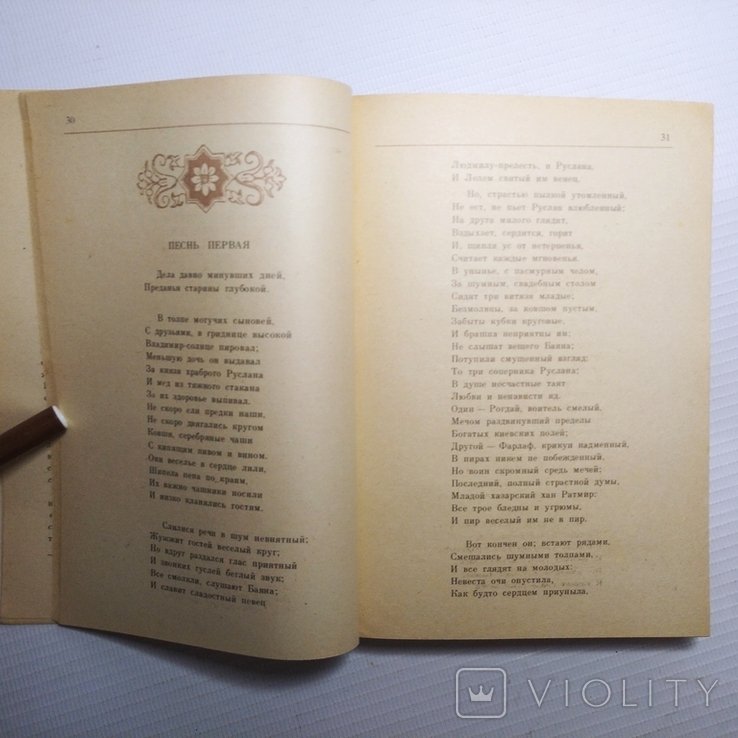 30
ПЕСНЬ ПЕРВАЯ
Дела давно минувших дней,
Преданья старины глубокой.
В толпе могучих сыновей,
С друзьями, в гриднице высокой
Владимир-солнце пировал;
Меньшую дочь он выдавал
За князя храброго Руслана
И мед из тяжкого стакана
За их здоровье выпивал.
Не скоро ели предки наши,
Не скоро двигались кругом
Ковши, серебряные чаши
С кипящим пивом и вином.
Они веселье в сердце лили,
Шипела пена по краям,
Их важно чашники носили
И низко кланялись гостям.
Слилися речи в шум невнятный;
Жужжит гостей веселый круг;
Но вдруг раздался глас приятный
И звонких гуслей беглый звук;
Все смолкли, слушают Баяна;
И славит сладостный певец
31
Людмилу-прелесть, и Руслана,
И Лелем свитый им венец.
Но, страстью пылкой утомленный,
Не ест, не пьет Руслан влюбленный;
На друга милого глядит,
Вздыхает, сердится, горит
И, щипля ус от нетерпенья,
Считает каждые мгновенья.
В унынье, с пасмурным челом,
За шумным, свадебным столом
Сидят три витязя младые;
Безмолвны, за ковшом пустым,
Забыты кубки круговые,
И брашна неприятны им;
Не слышат вещего Баяна;
Потупили смущенный взгляд:
То три соперника Руслана;
В душе несчастные таят
Любви и ненависти яд.
Один — Рогдай, воитель смелый,
Мечом раздвинувший пределы
Богатых киевских полей;
Другой — Фарлаф, крикун надменный,
В пирах никем не побежденный,
Но воин скромный средь мечей;
Последний, полный страстной думы,
Младой хазарский хан Ратмир:
Все трое бледны и угрюмы,
И пир веселый им не в пир.
Вот кончен он; встают рядами,
Смешались шумными толпами,
И все глядят на молодых:
Невеста очи опустила,
Как будто сердцем приуныла,
VIOLITY